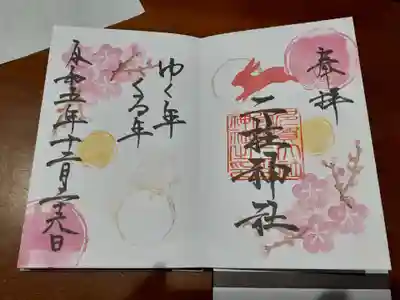 奉拝
二柱神社
ゆく年
くる年
令和五年十二月二十八日